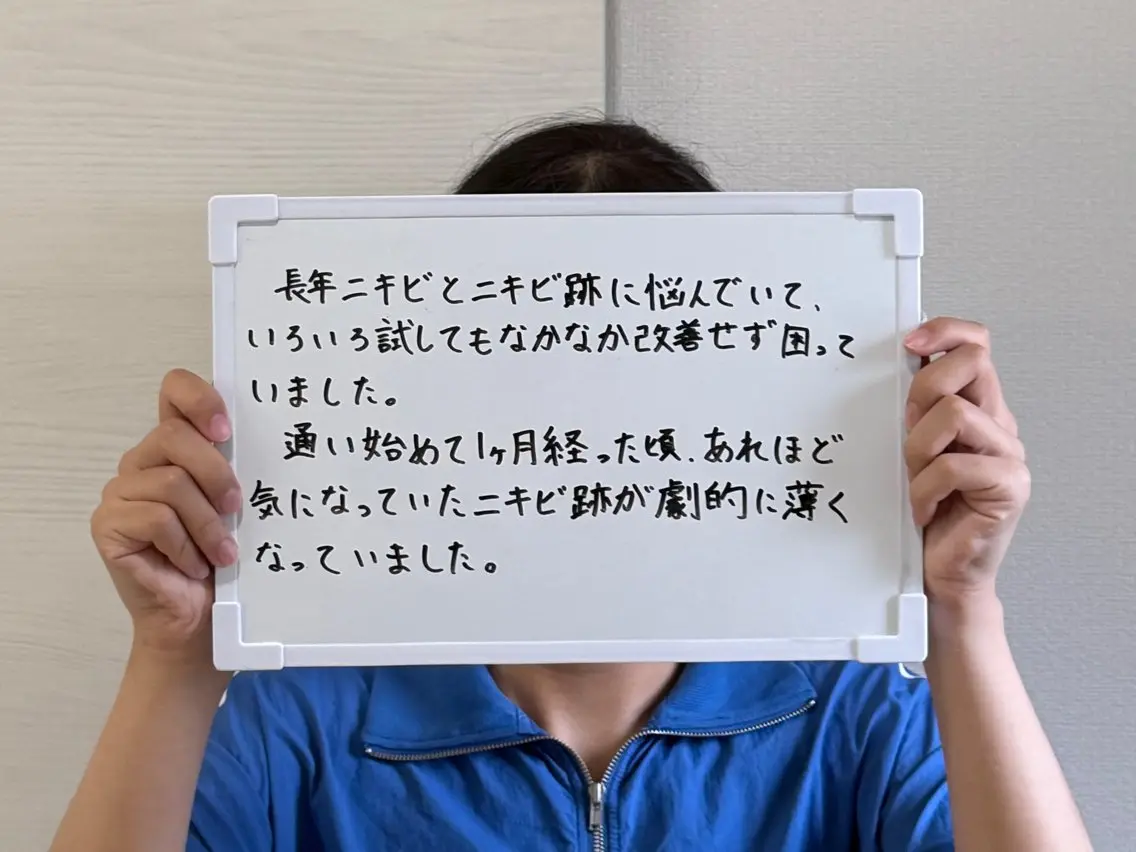 長年ニキビとニキビ跡に悩んでいて、
いろいろ試してもなかなか改善せず困って
いました。
通い始めて1ヶ月経った頃、あれほど
気になっていたニキビ跡が劇的に薄く
なっていました。